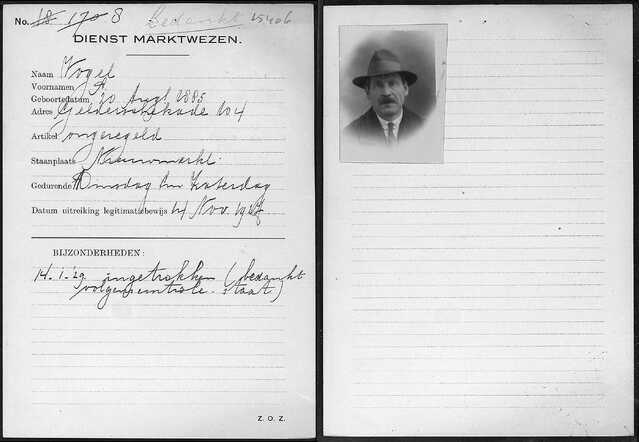 No. 18 170 8 Bedankt 25406
DIENST MARKTWEZEN.
Naam Vogel
Voornamen A
Geboortedatum 20 Aug! 1885
Adres Geldersche kade 104
Artikel ongeregeld
Staanplaats Nieuwmarkt
Gedurende Dinsdag t/m Zaterdag
Datum uitreiking legitimatiebewijs 14 Nov. 1927
BIJZONDERHEDEN:
14.1.'29 ingetrokken (bedankt
volgens controle-staat)
Z. O. Z.